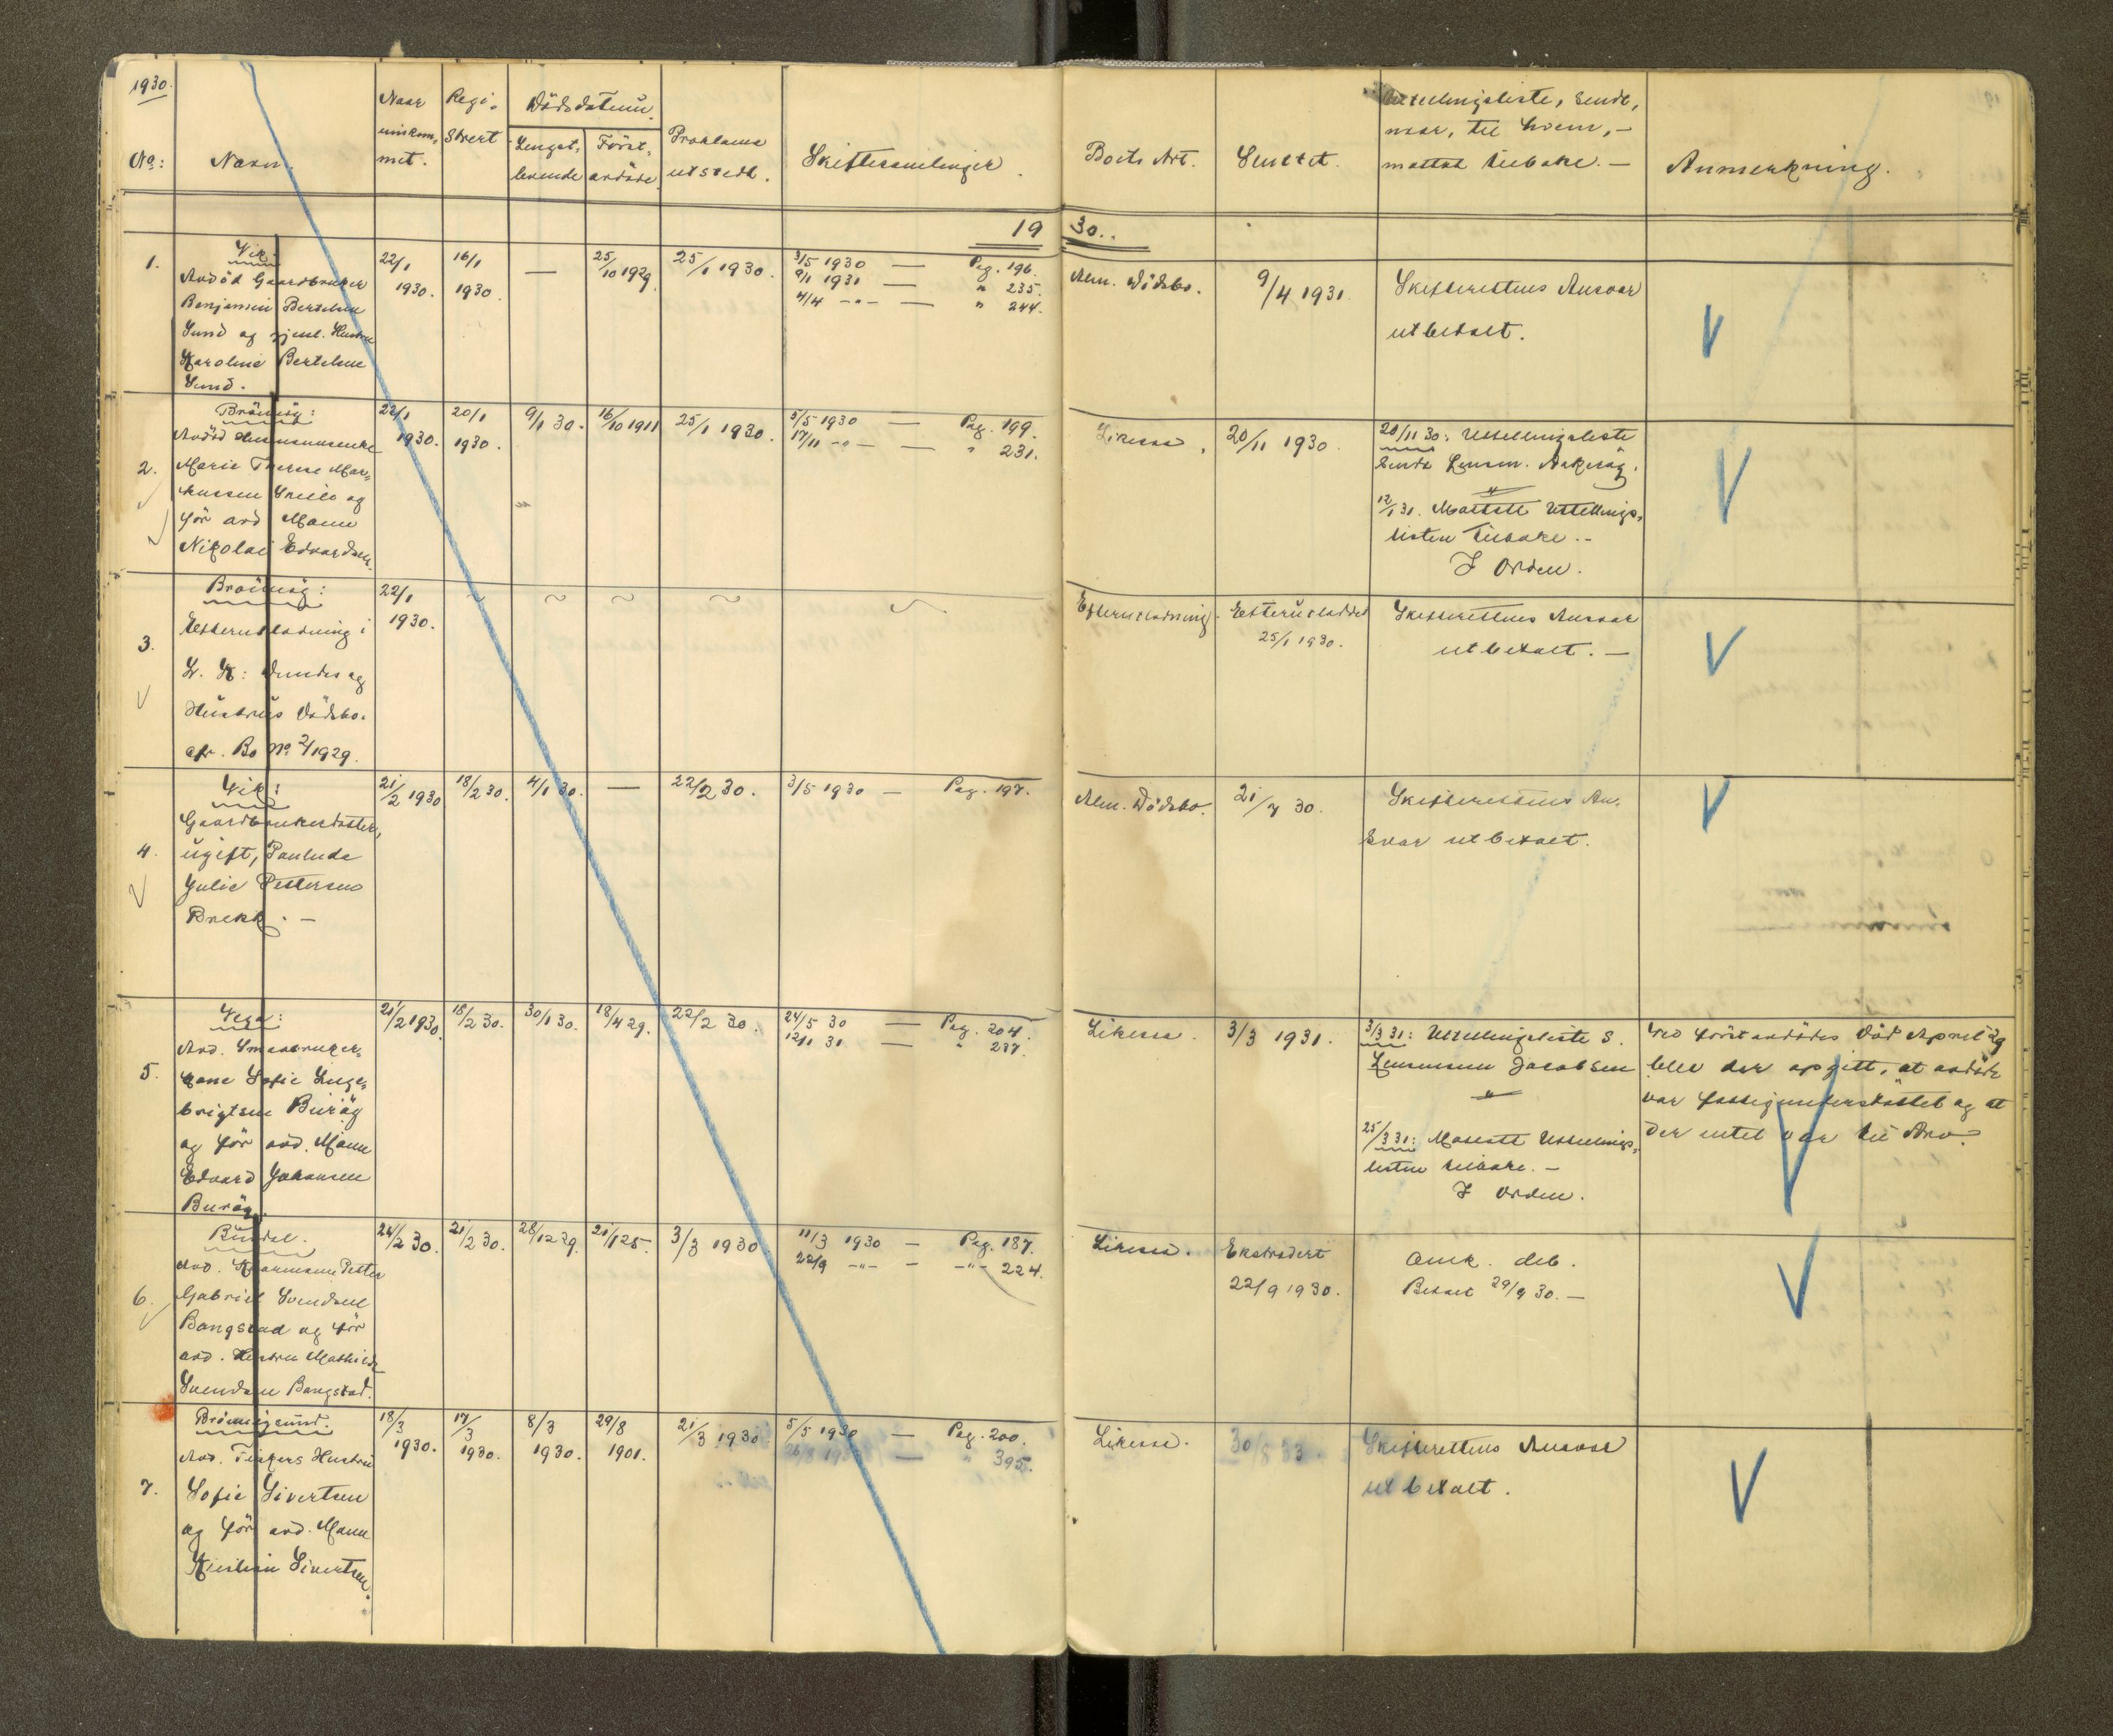 1930.
No: Navn.
Naar
innkom-
met.
Regi-
strert
Dödsdatum.
Lengst-
levende
Först-
avdöde
Proklama
utstedt.
Skiftesamlinger.
Boets Art.
Sluttet.
Utlodningsliste, sendt,
naar, til hvem, —
mottat tilbake. —
Anmerkning.
19 30.
1.
Vik:
Avdöd Gaardbruker
Benjamin Bertelsen
Sund og gjenl. Hustru
Karoline Bertelsen
Sund.
22/1
1930.
16/1
1930
—
25/10 1929
25/1 1930.
3/5 1930 — Pag. 196.
9/1 1931 — " 235.
4/4 -"- — " 244.
Alm. Dödsbo.
9/4 1931.
Skifterettens Ansvar
utbetalt.
2.
Brönnöy:
Avdöd
Marie Therese Mar-
kussen
og
för avd Mann
Nikolai Edvardsen.
22/1
1930.
20/1
1930.
9/1 30.
16/10 1911
25/1 1930.
5/5 1930 — Pag. 199.
17/11 -"- — " 231.
20/11 1930.
20/11 30: Utlodningsliste
sendt Lensm.
"
12/1 31. Mottatt Utlodnings-
listen tilbake. -
I Orden.
3.
Brönnöy:
Efterutlodning i
og
Hustrus Dödsbo.
cfr. Bo No 2/1929.
22/1
1930.
Efterutlodning.
Efterutloddet
25/1 1930.
Skifterettens Ansvar
utbetalt. —
4.
Vik:
Gaardbrukerdatter,
ugift, Paulude
Julie Pettersen
Brekk. —
21/2 1930
18/2 30.
4/1 30.
—
22/2 30.
3/5 1930 — Pag. 197.
Alm. Dödsbo.
21/7 30.
Skifterettens An-
svar utbetalt.
5.
Vega:
Avd. Smaabruker-
kone Sofie Inge-
brigtsen Buröy
og för avd. Mann
Edvard Johansen
Buröy.
21/2 1930.
18/2 30.
30/1 30.
18/4 29.
22/2 30.
24/5 30 — Pag. 204.
12/1 31 — " 237.
3/3 1931.
3/3 31: Utlodningsliste s.
Lensmann Jacobsen
"
25/3 31: Mottatt Utlodnings-
listen tilbake. —
I Orden.
Ved förstavdödes Död April 29
blev der opgitt, at avdöde
var fattigunderstöttet og at
der intet var til Arv.
6.
Bindal.
Avd. Kaarmann Petter
Gabriel Svendsen
Bangstad og för
avd. Hustru Mathilde
Svendsen Bangstad.
24/2 30.
21/2 30.
28/12 29.
21/1 25.
3/3 1930
11/3 1930 — Pag. 187.
22/9 -"- — -"- 224.
Ekstradert
22/9 1930.
Omk. deb.
Betalt 29/9 30. —
7.
Brönnöysund.
Avd. Fiskers Hustru
Sofie Sivertsen
og för avd. Mann
Sivertsen.
18/3
1930.
17/3
1930.
8/3
1930.
29/8
1901.
21/3 1930
5/5 1930 — Pag. 200.
— " 395.
30/8 33.
Skifterettens Ansvar
utbetalt.